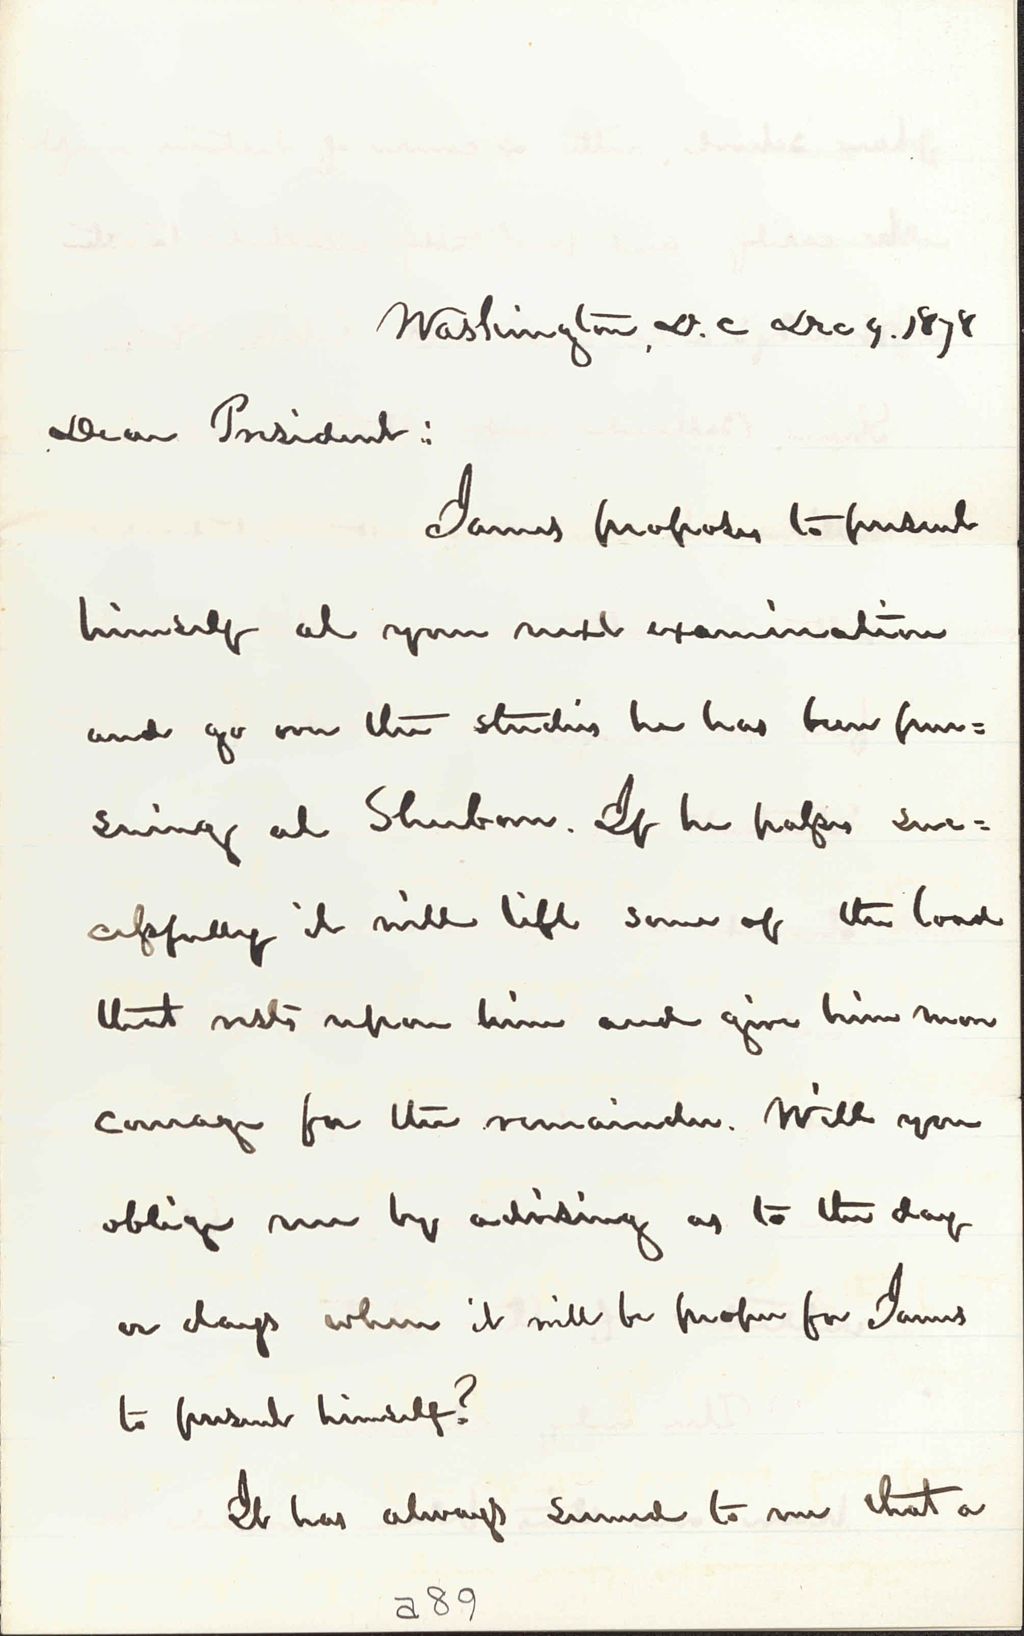 Washington, D. C Dec 9. 1878
Dear President:
James proposes to present
himself at your next examination
and go over the studies he has been pur=
suing at Sherborn. If he passes suc=
cessfully it will lift some of the load
that rests upon him and give him more
courage for the remainder. Will you
oblige me by advising as to the day
or days when it will be proper for James
to present himself?
It has always seemed to me that a
a89